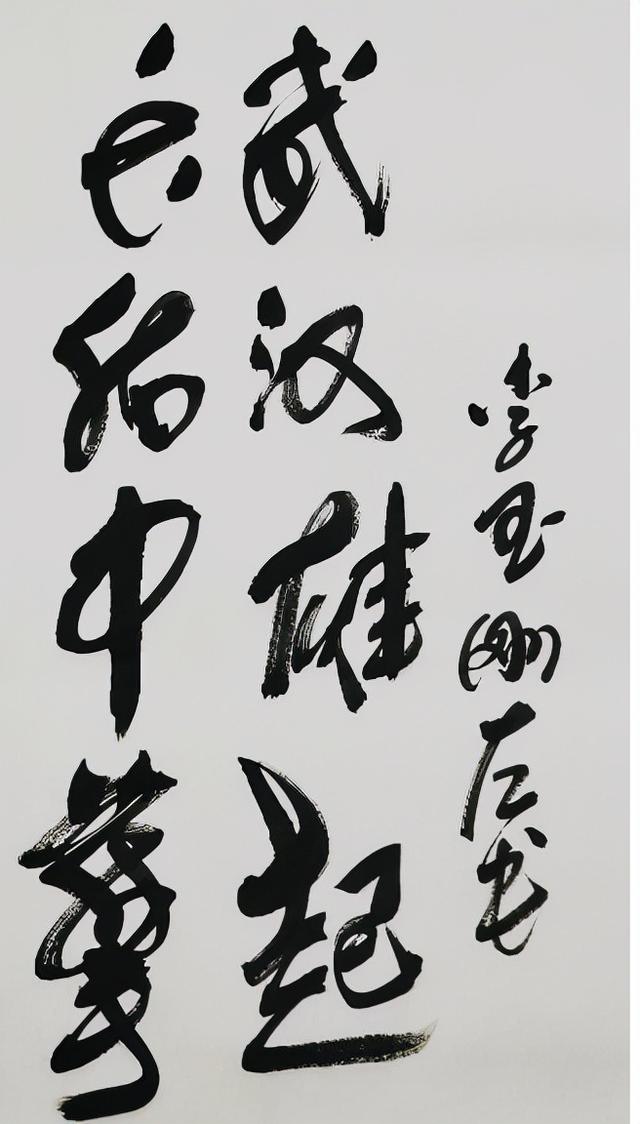 李玉刚左书
武汉雄起
佑中华